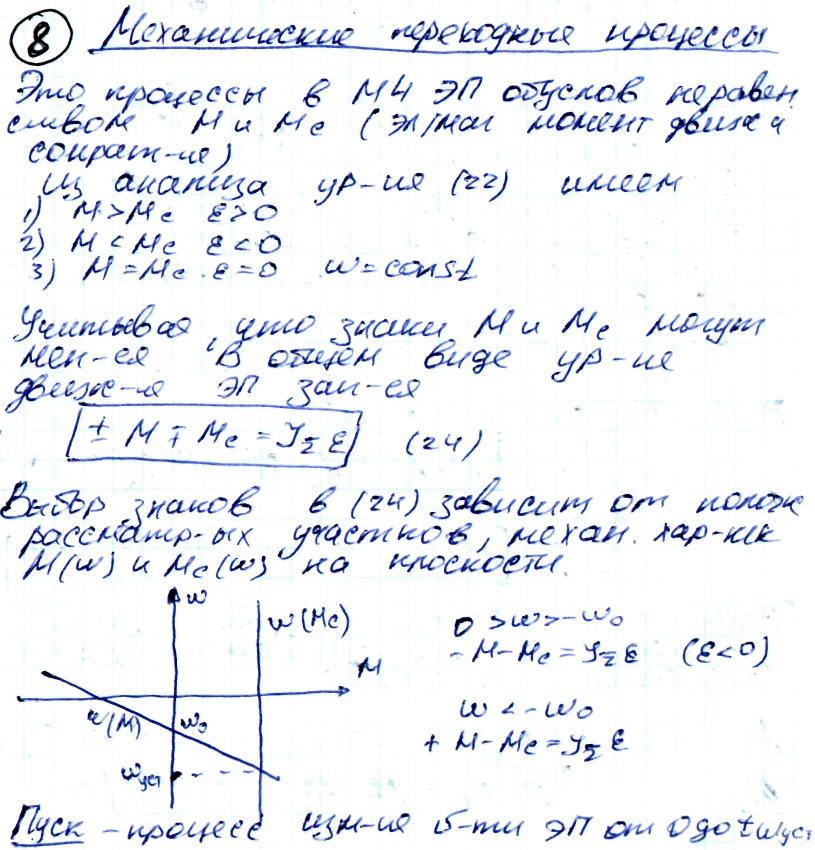 8 Механические переходные процессы
Это процессы в МЧ ЭП обуслов неравен
ством М и Мс (эл/маг момент движ и
сопрат-ия)
Из анализа ур-ия (22) имеем
1) М > Мс ε > 0
2) М < Мс ε < 0
3) М = Мс ε = 0 w = const
Учитывая, что знаки М и Мс могут
мен-ся В общем виде ур-ие
движ-я ЭП зап-ся
± М ∓ Мс = J_Σ ε (24)
Выбор знаков в (24) зависит от полож
рассматр-ых участков, механ. хар-тик
М(w) и Мс(w) на плоскости.
w
w(Мс)
М
w(М)
w₀
wуст
0 > w > -w₀
- М - Мс = J_Σ ε (ε < 0)
w < - w₀
+ М - Мс = J_Σ ε
Пуск - процесс изм-ия ск-ти ЭП от 0 до ± wуст